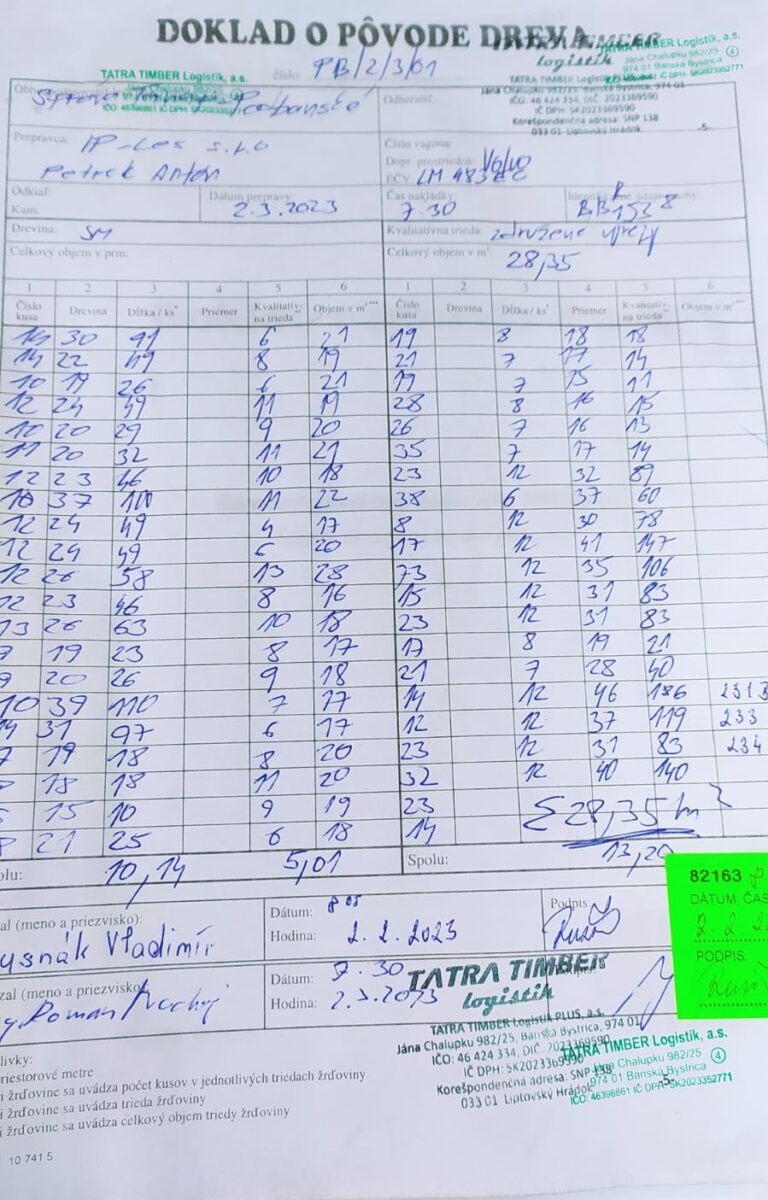 DOKLAD O PÔVODE DREVA
TATRA TIMBER Logistik, a.s.
číslo: PB/2/3/01
TATRA TIMBER
logistik
TATRA TIMBER Logistik, a.s.
Jána Chalupku 982/25
974 01 Banská Bystrica
IČO: 46 424 334, DIČ: 2023369590
IČ DPH: SK2023369590
Korešpondenčná adresa: SNP 138
033 01 Liptovský Hrádok
-5-
Odberateľ:
Prepravca: IP-Les s.r.o
Petrek Anton
Číslo vagóna:
Dopr. prostriedok: Volvo
EČV: LM 483
Odkiaľ:
Kam:
Dátum prepravy:
2.3.2023
Čas nakládky
7.30
BB153
Drevina: SM
Kvalitatívna trieda: združene
Celkový objem v prm:
Celkový objem v m³:
28,35
1 2 3 4 5 6 1 2 3 4 5 6
Číslo kusa Drevina Dĺžka / ks* Priemer Kvalitatív- na trieda** Objem v m³*** Číslo kusa Drevina Dĺžka / ks* Priemer Kvalitatív- na trieda** Objem v m³***
14 30 91 6 21 19 8 18 18
14 22 49 8 19 21 7 17 14
10 19 26 6 21 19 7 15 11
12 24 49 11 19 28 8 16 15
10 20 29 9 20 26 7 16 13
11 20 32 11 21 35 7 17 14
12 23 46 10 18 23 12 32 89
10 37 100 11 22 38 6 37 60
12 24 49 4 17 8 12 30 78
12 24 49 6 20 17 12 41 147
12 26 58 13 28 73 12 35 106
12 23 46 8 16 15 12 31 83
13 26 63 10 18 23 12 31 83
7 19 23 8 17 17 8 19 21
9 20 26 9 18 21 7 28 40
10 39 110 7 17 14 12 46 186
14 31 97 6 17 12 12 37 119 233
7 19 18 8 20 23 12 31 83 234
18 18 11 20 32 12 40 140
15 10 9 19 23 Σ 28,35
21 25 6 18 14
olu: 10,14 5,01 Spolu: 13,20
82163
DÁTUM, ČAS
PODPIS:
al (meno a priezvisko):
usnák Vladimír
Dátum:
Hodina: 2.2.2023
Podpis:
zal (meno a priezvisko)
Roman
Dátum: 7.30
Hodina: 2.3.2023
TATRA TIMBER
logistik
TATRA TIMBER Logistik PLUS, a.s.
Jána Chalupku 982/25, Banská Bystrica, 974 01
IČO: 46 424 334, DIČ: 2023369590
IČ DPH: SK2023369590
Korešpondenčná adresa: SNP 138
033 01 Liptovský Hrádok
-5-
TATRA TIMBER Logistik, a.s.
Jána Chalupku 982/25
974 01 Banská Bystrica
IČO: 46396861 IČ DPH: SK2023352771
4
livky:
riestorové metre
i žrďovine sa uvádza počet kusov v jednotlivých triedach žrďoviny
i žrďovine sa uvádza trieda žrďoviny
i žrďovine sa uvádza celkový objem triedy žrďoviny
10 741 5